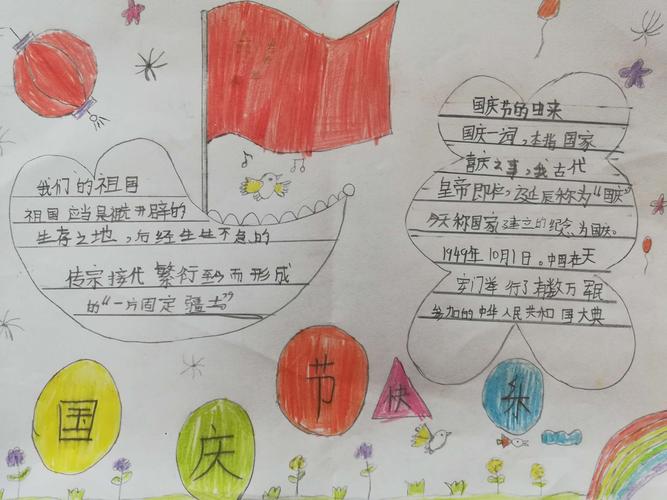 我们的祖国
祖国应当是被开辟的
生存之地,后经生生不息的
传宗接代繁衍至而形成
的“一片固定疆土”
国庆节的由来
国庆一词,本指国家
喜庆之事,我古代
皇帝即位,诞辰称为“国庆”
今天称国家建立的纪念为国庆。
1949年10月1日。中国在天
安门举行了有数万军民
参加的中华人民共和国大典
国 庆 节 快 乐